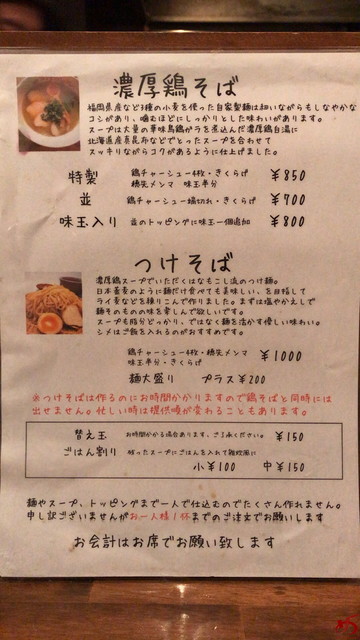 濃厚鶏そば
福岡県産など3種の小麦を使った自家製麺は細いながらもしなやかな
コシがあり、噛むほどにしっかりとした味わいがあります。
スープは大量の華味鳥鶏ガラを煮込んだ濃厚鶏白湯に
北海道産真昆布などでとったスープを合わせて
スッキリながらコクがあるように仕上げました。
特製 鶏チャーシュー4枚・きくらげ ¥850
穂先メンマ 味玉半分
並 鶏チャーシュー端切れ・きくらげ ¥700
味玉入り 並のトッピングに味玉一個追加 ¥800
つけそば
濃厚鶏スープでいただくはなもこし流のつけ麺。
日本蕎麦のように麺だけ食べても美味しい、を目指して
ライ麦などを練りこんで作りました。まずは塩やかえしで
麺そのものの味を楽しんで欲しいです。
スープも脂分どっかり、ではなく麺を活かす優しい味わい。
シメはご飯を入れるのがおすすめです。
鶏チャーシュー4枚・穂先メンマ ¥1000
味玉半分・きくらげ
麺大盛り プラス¥200
※つけそばは作るのにお時間かかりますので鶏そばと同時には
出せません。忙しい時は提供順が変わることもあります。
替え玉 お時間かかる場合あります、ご了承ください。 ¥150
ごはん割り 残ったスープにごはんを入れて雑炊風に
小¥100 中¥150
麺やスープ、トッピングまで一人で仕込むのでたくさん作れません。
申し訳ございませんがお一人様1杯までのご注文でお願いします
お会計はお席でお願い致します